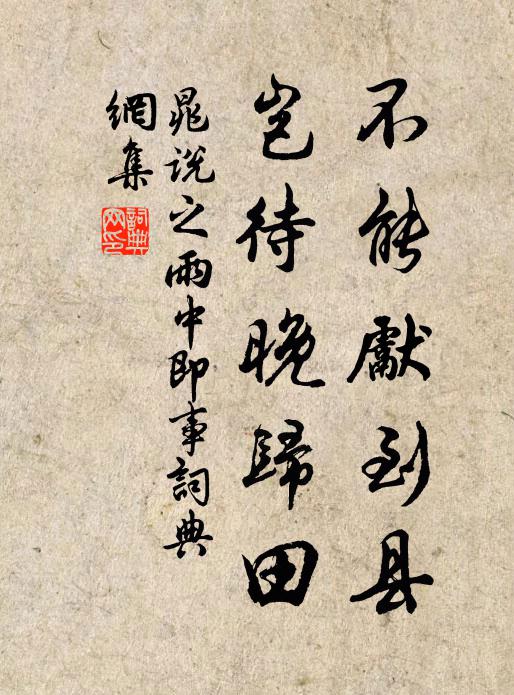 不能獻到县
豈待晚歸田
晁說之雨中即事詞典
網集
詞典網印